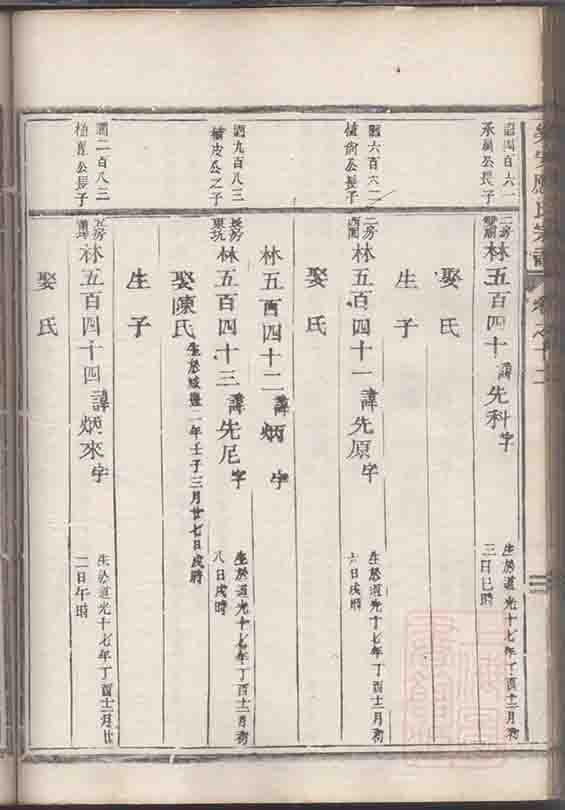 應氏宗譜
卷之十二
國四百六一
承 公長子
二房
林五百四十諱先科字
生於道光十七年丁酉十二月初
三日巳時
娶氏
生子
國六百六二
公長子
二房
林五百四十一諱先原字
生於道光十七年丁酉十二月初
六日戌時
娶氏
林五百四十二諱炳字
國九百八三
公之子
長房
林五百四十三諱先尼字
生於道光十七年丁酉十二月初
八日戌時
娶陳氏
生於咸豐二年壬子三月廿七日戌時
生子
國二百八三
公長子
林五百四十四諱炳來字
生於道光十七年丁酉十二月廿
二日午時
娶氏